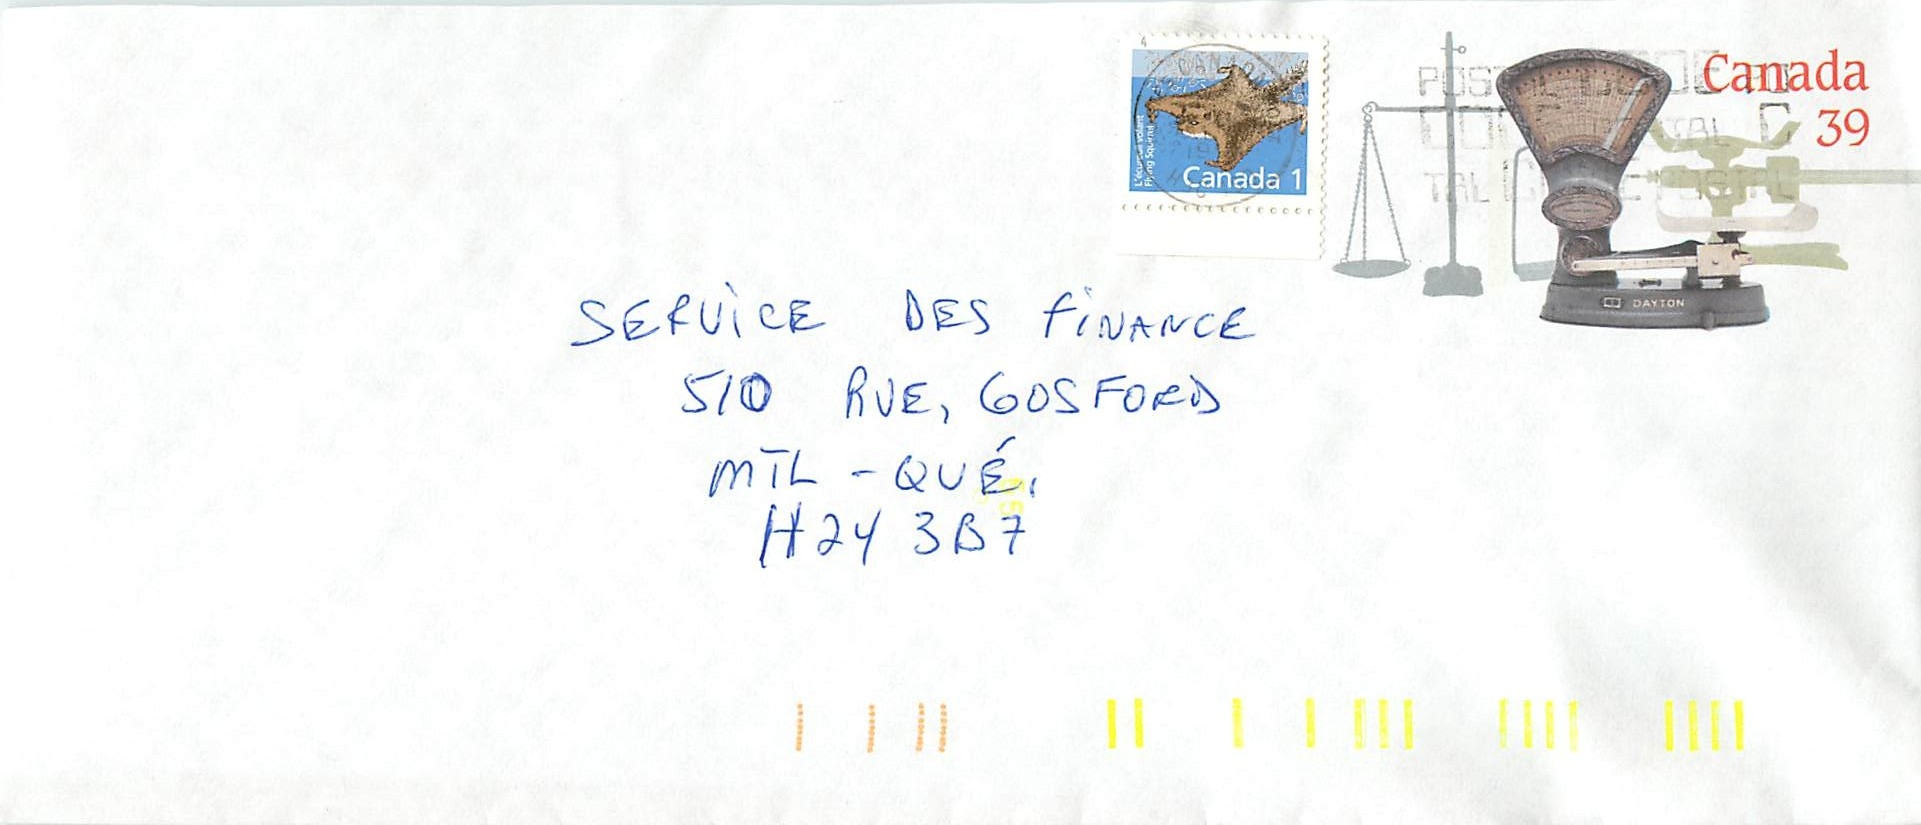 Canada
39
L'écureuil volant
Flying Squirrel
Canada 1
DAYTON
SERVICE DES FINANCE
510 RUE, GOSFORD
MTL - QUÉ.
H2Y 3B7